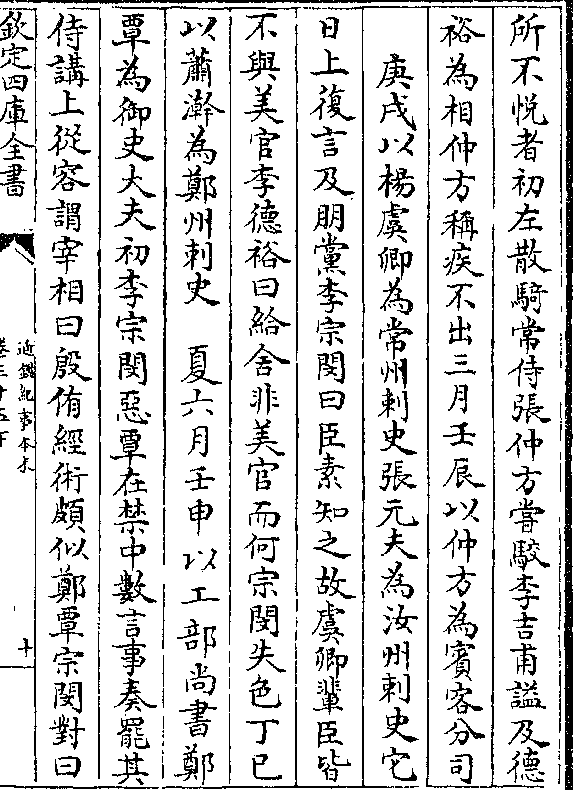 所不悅者初左散騎常侍張仲方嘗駮李吉甫謚及德
裕為相仲方稱疾不出三月壬辰以仲方為賓客分司
庚戌以楊虞卿為常州刺史張元夫為汝州刺史它
日上復言及朋黨李宗閔曰臣素知之故虞卿輩臣皆
不與美官李德裕曰給舍非美官而何宗閔失色丁巳
以蕭澣為鄭州刺史　夏六月壬申以工部尚書鄭
覃為御史大夫初李宗閔惡覃在禁中數言事奏罷其
侍講上從容謂宰相曰殷侑經術頗似鄭覃宗閔對曰
欽定四庫全書
通鑑紀事本末
卷三十五下
十